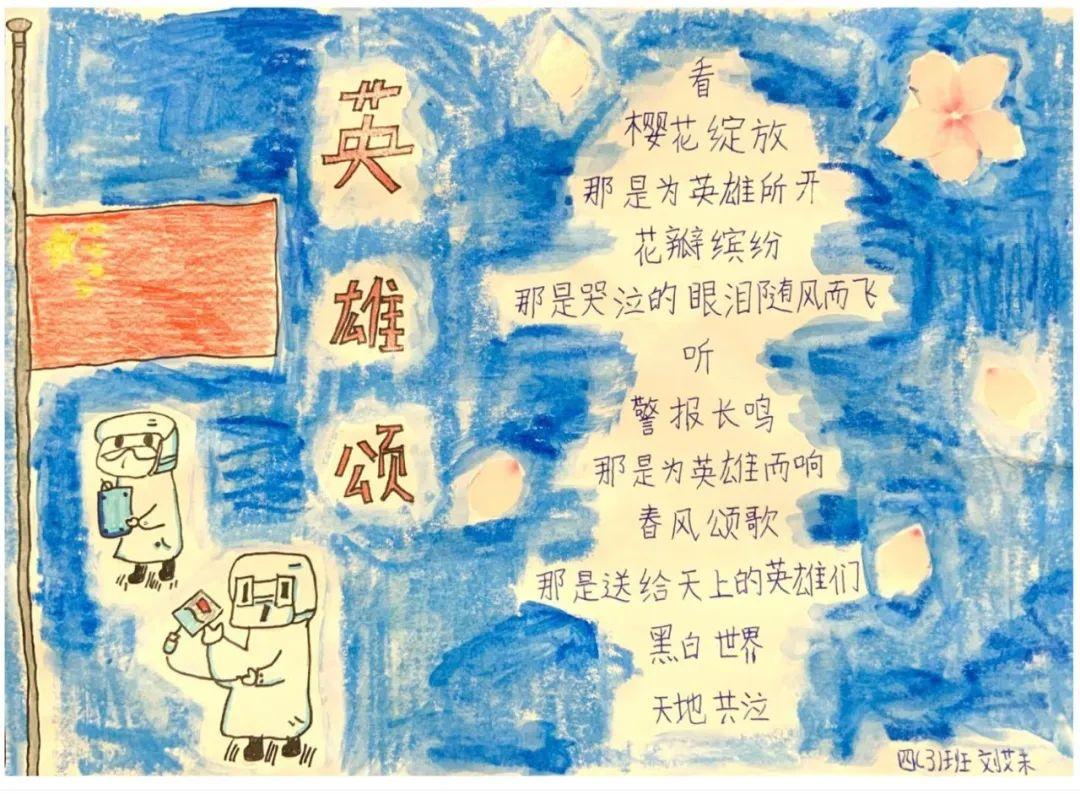 英雄颂
看
樱花绽放
那是为英雄所开
花瓣缤纷
那是哭泣的眼泪随风而飞
听
警报长鸣
那是为英雄而响
春风颂歌
那是送给天上的英雄们
黑白世界
天地共泣
四(3)班 刘艾未